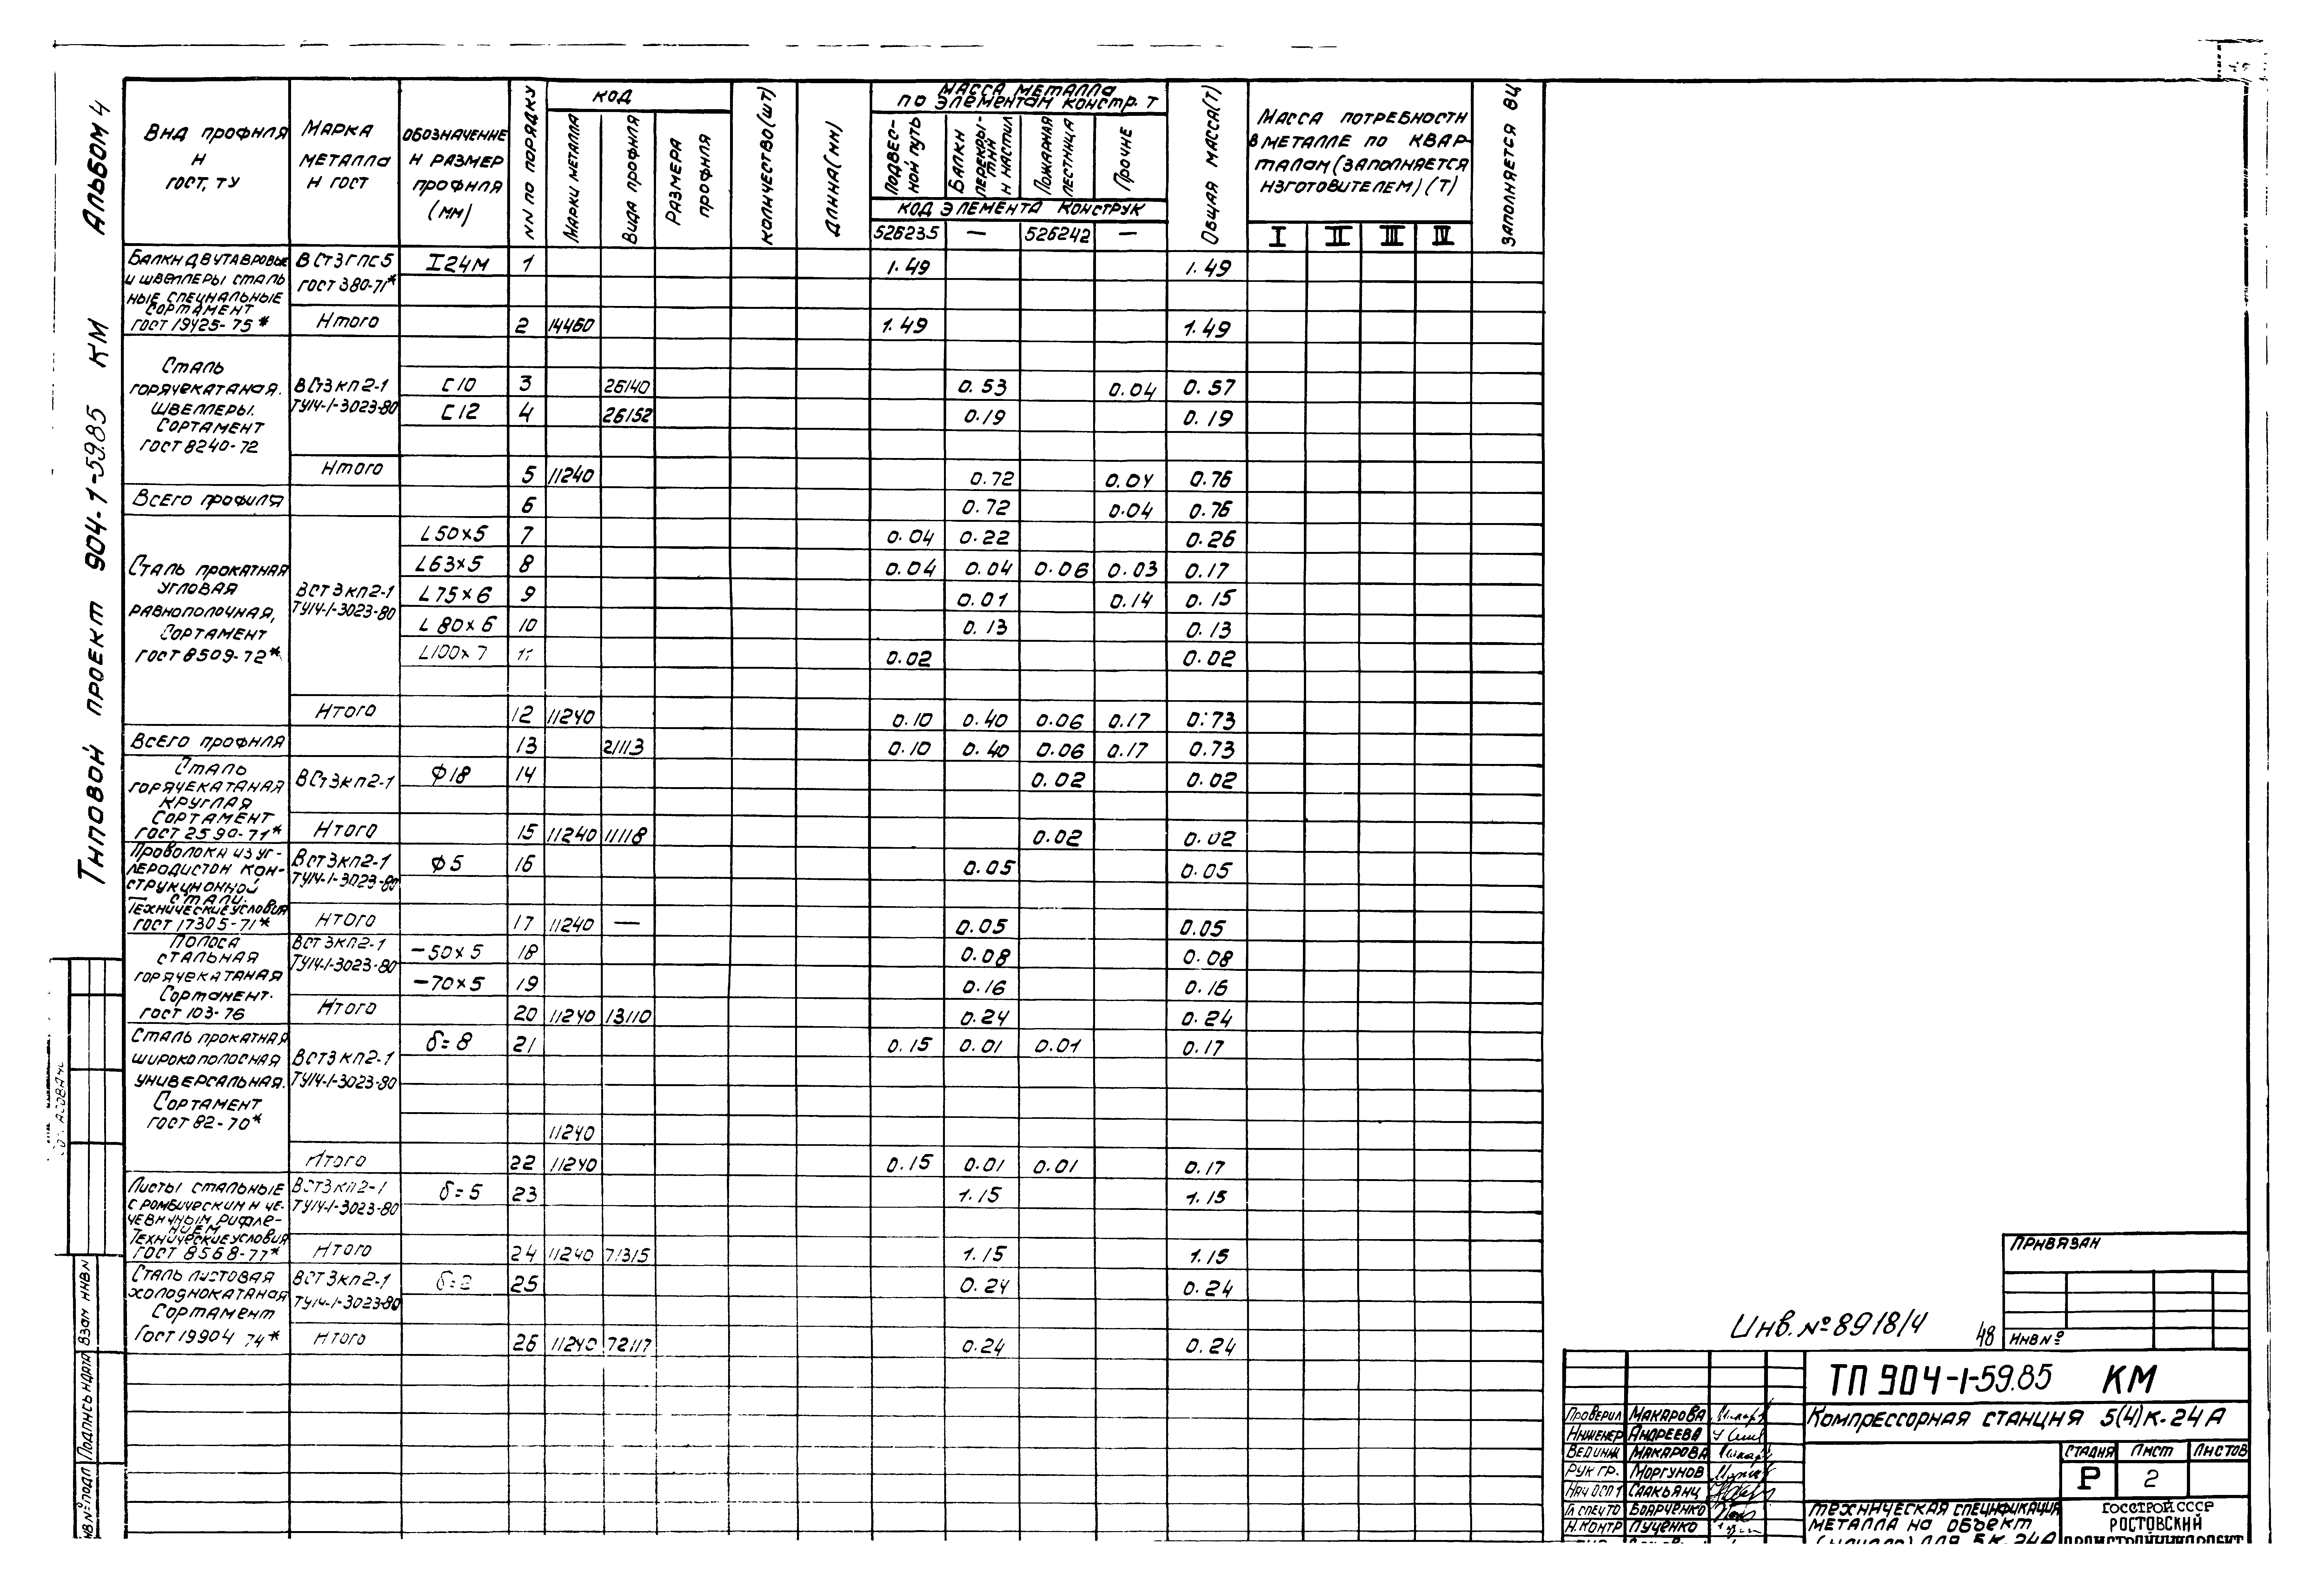 Альбом 4
Типовой проект 904-1-59.85 КМ
Вид профиля и ГОСТ, ТУ
Марка металла и ГОСТ
Обозначение и размер профиля (мм)
NN по порядку
Код
Марки металла
Вида профиля
Размера профиля
Количество (шт)
Длина (мм)
Масса металла по элементам констр. т
Подвес-ной путь
Балки перекры-тий и настил
Пожарная лестница
Прочие
Код элемента конструк
526235 — 526242 —
Общая масса (т)
Масса потребности в металле по квар-талам (заполняется изготовителем) (т)
I II III IV
Заполняется ВЦ
Балки двутавровые и швеллеры сталь ные специальные Сортамент ГОСТ 19425-75*
ВСт3Гпс5 ГОСТ 380-71*
I24М 1 1.49 1.49
Итого 2 14460 1.49 1.49
Сталь горячекатаная. швеллеры. Сортамент ГОСТ 8240-72
ВСт3кп2-1 ТУ14-1-3023-80
С10 3 26140 0.53 0.04 0.57
С12 4 26152 0.19 0.19
Итого 5 11240 0.72 0.04 0.76
Всего профиля 6 0.72 0.04 0.76
Сталь прокатная угловая равнополочная, Сортамент ГОСТ 8509-72*
ВСт3кп2-1 ТУ14-1-3023-80
L50×5 7 0.04 0.22 0.26
L63×5 8 0.04 0.04 0.06 0.03 0.17
L75×6 9 0.01 0.14 0.15
L80×6 10 0.13 0.13
L100×7 11 0.02 0.02
Итого 12 11240 0.10 0.40 0.06 0.17 0.73
Всего профиля 13 21113 0.10 0.40 0.06 0.17 0.73
Сталь горячекатаная круглая Сортамент ГОСТ 2590-71*
ВСт3кп2-1
Ф18 14 0.02 0.02
Итого 15 11240 11118 0.02 0.02
Проволоки из уг-леродистой кон-струкционной стали. Технические условия ГОСТ 17305-71*
ВСт3кп2-1 ТУ14-1-3023-80
Ф5 16 0.05 0.05
Итого 17 11240 — 0.05 0.05
Полоса стальная горячекатаная Сортамент. ГОСТ 103-76
ВСт3кп2-1 ТУ14-1-3023-80
-50×5 18 0.08 0.08
-70×5 19 0.16 0.16
Итого 20 11240 13110 0.24 0.24
Сталь прокатная широкополосная универсальная. Сортамент ГОСТ 82-70*
ВСт3кп2-1 ТУ14-1-3023-80
δ=8 21 0.15 0.01 0.01 0.17
11240
Итого 22 11240 0.15 0.01 0.01 0.17
Листы стальные с ромбическим и че-чевичным рифле-нием Технические условия ГОСТ 8568-77*
ВСт3кп2-1 ТУ14-1-3023-80
δ=5 23 1.15 1.15
Итого 24 11240 71315 1.15 1.15
Сталь листовая холоднокатаная Сортамент ГОСТ 19904 74*
ВСт3кп2-1 ТУ14-1-3023-80
δ=2 25 0.24 0.24
Итого 26 11240 72117 0.24 0.24
Взам инв N
Подпись и дата
Инв.№8918/4
48
Привязан
Инв №
ТП 904-1-59.85 КМ
Компрессорная станция 5(4)К-24А
Проверил Макарова
Инженер Андреева
Вед инж Макарова
Рук гр. Моргунов
Нач ОСП 1 Саакьянц
Гл спец ТО Боярченко
Н.контр Луценко
Стадия Лист Листов
Р 2
Техническая спецификация
металла на объект
(начало) для 5К-24А
Госстрой СССР
Ростовский
Промстройниипроект